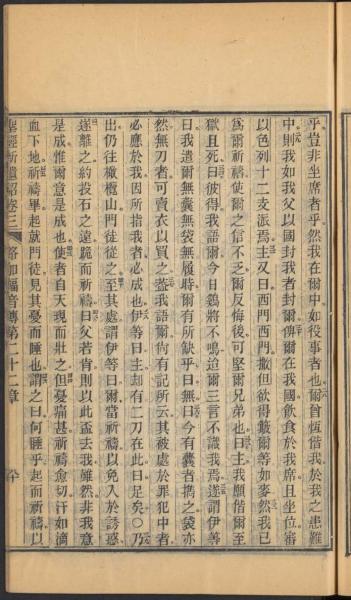 乎豈非坐席者乎然我在爾中如役事者也爾曾恆偕我於我之患難
中則我如我父以國封我者封爾俾爾在我國飲食於我席且坐位審
以色列十二支派焉主又曰西門西門撒但欲得簸爾等如麥然我已
爲爾祈禱使爾之信不乏爾反悔後可堅爾兄弟也曰主我願偕爾至
獄且死曰彼得我語爾今日鷄將不鳴迨爾三言不識我焉遂謂伊等
曰我遣爾無囊無袋無履時爾有所缺乎曰無曰今有囊者攜之袋亦
然無刀者可賣衣以買之蓋我語爾尚有記所云其被處於罪犯中者
必應於我因所指我者必成也伊等曰主却有二刀在此曰足矣○乃
出仍往橄欖山門徒從之至其處謂伊等曰爾當祈禱以免入於誘惑
遂離之約投石之遠跪而祈禱曰父若肯則以此盃去我雖然非我意
是成惟爾意是成也使者自天現而壯之但憂痛甚祈禱愈切汗如滴
血下地祈禱畢起就門徒見其憂而睡也謂之曰何睡乎起而祈禱以
聖經新遺詔卷三 路加福音傳第二十二章 八十